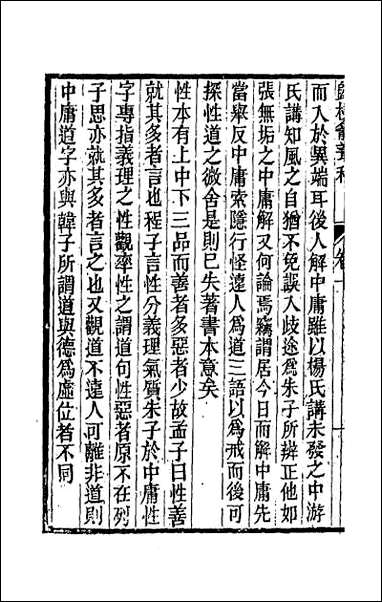 而入於異端耳後人解中庸雖以楊氏講未發之中游
氏講知風之自猶不免誤入歧途爲朱子所辨正他如
張無垢之中庸解又何論焉竊謂居今日而解中庸先
當舉反中庸索隱行怪遠人爲道三語以爲戒而後可
探性道之微舍是則已失著書本意矣
性本有上中下三品而善者多惡者少故孟子曰性善
就其多者言也程子言性分義理氣質朱子於中庸性
字專指義理之性觀率性之謂道句性惡者原不在列
子思亦就其多者言之也又觀道不遠人可離非道則
中庸道字亦與韓子所謂道與德爲虛位者不同